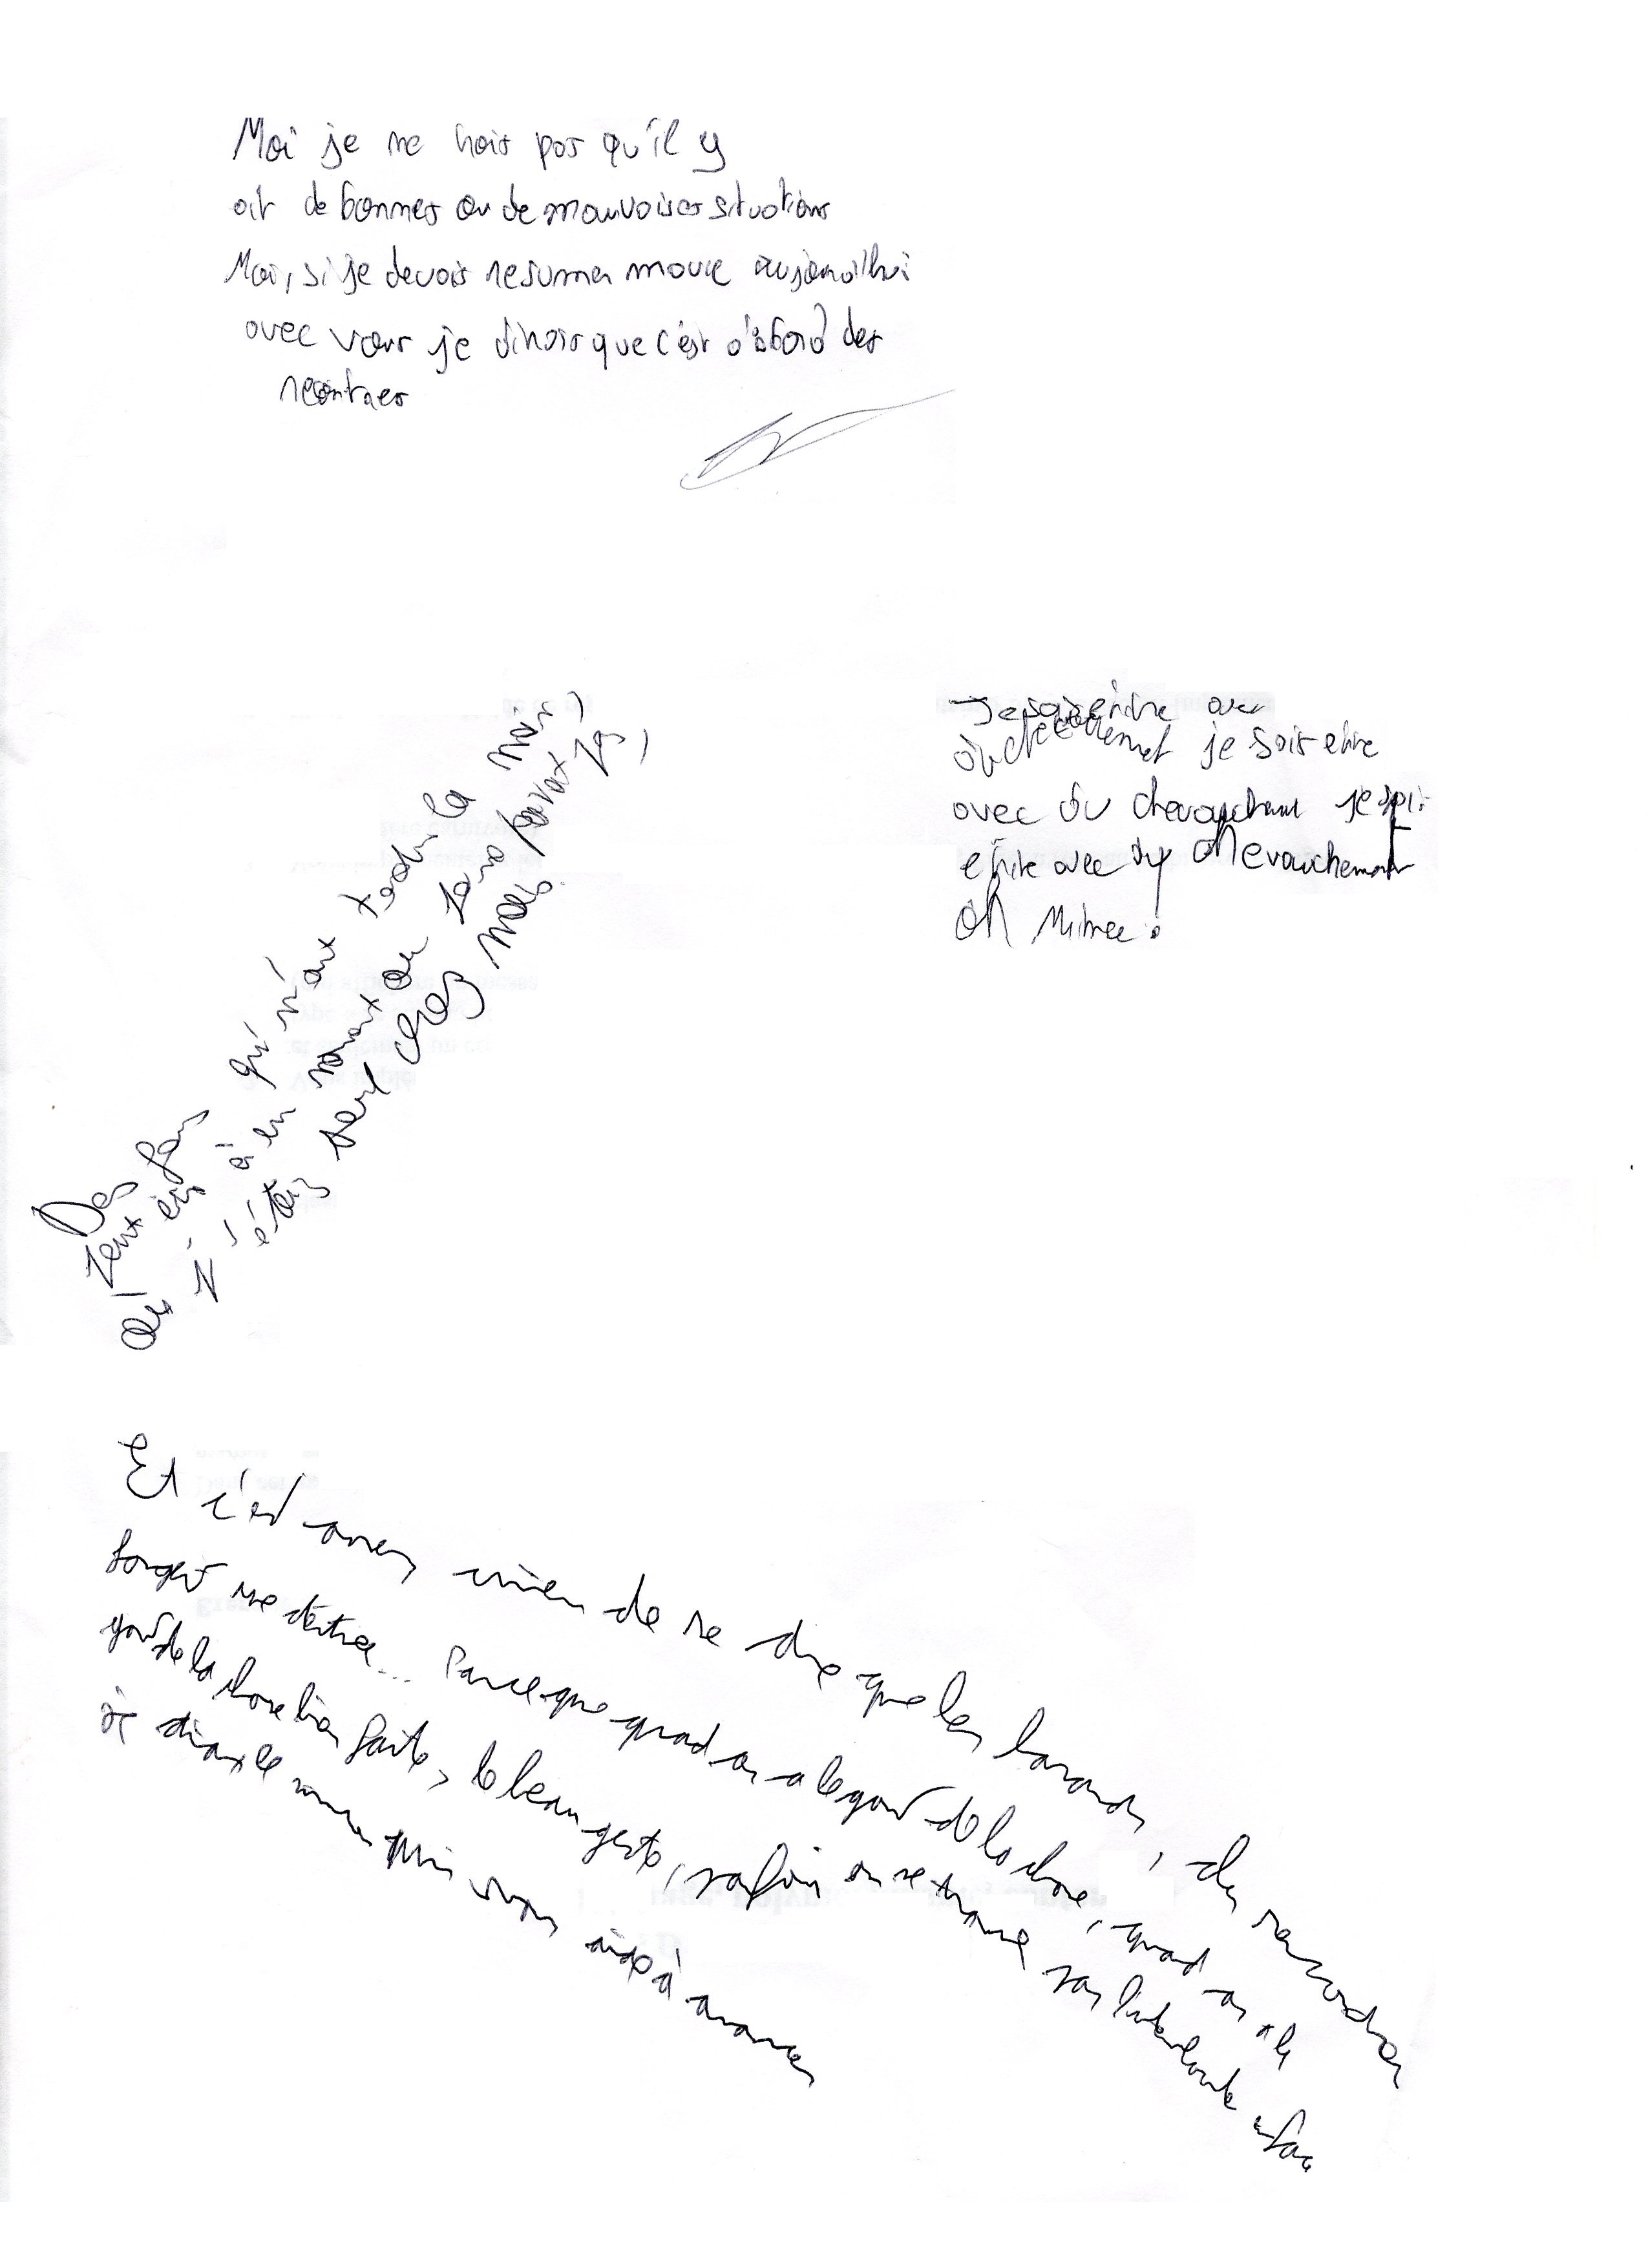 Moi je ne crois pas qu'il y
ait de bonnes ou de mauvaises situations
Moi, si je devais resumer ma vie aujourd'hui
avec vous je dirais que c'est d'abord des
recontres
Des gens qui m'ont tendu la main,
peut être à un moment où je ne pouvais pas,
où j'étais seul chez moi.
Je sais écrire avec
du chevauchement je sais ecrire
avec du chevauchement je sais
ecrire avec du chevauchement
oh Mince !
Et c'est assez curieux de se dire que les hasards, les rencontres
forgent une destinée... Parce que quand on a le goût de la chose, quand on a le
goût de la chose bien faite, le beau geste, parfois on ne trouve pas l'interlocuteur en face
je dirais le miroir qui vous aide à avancer